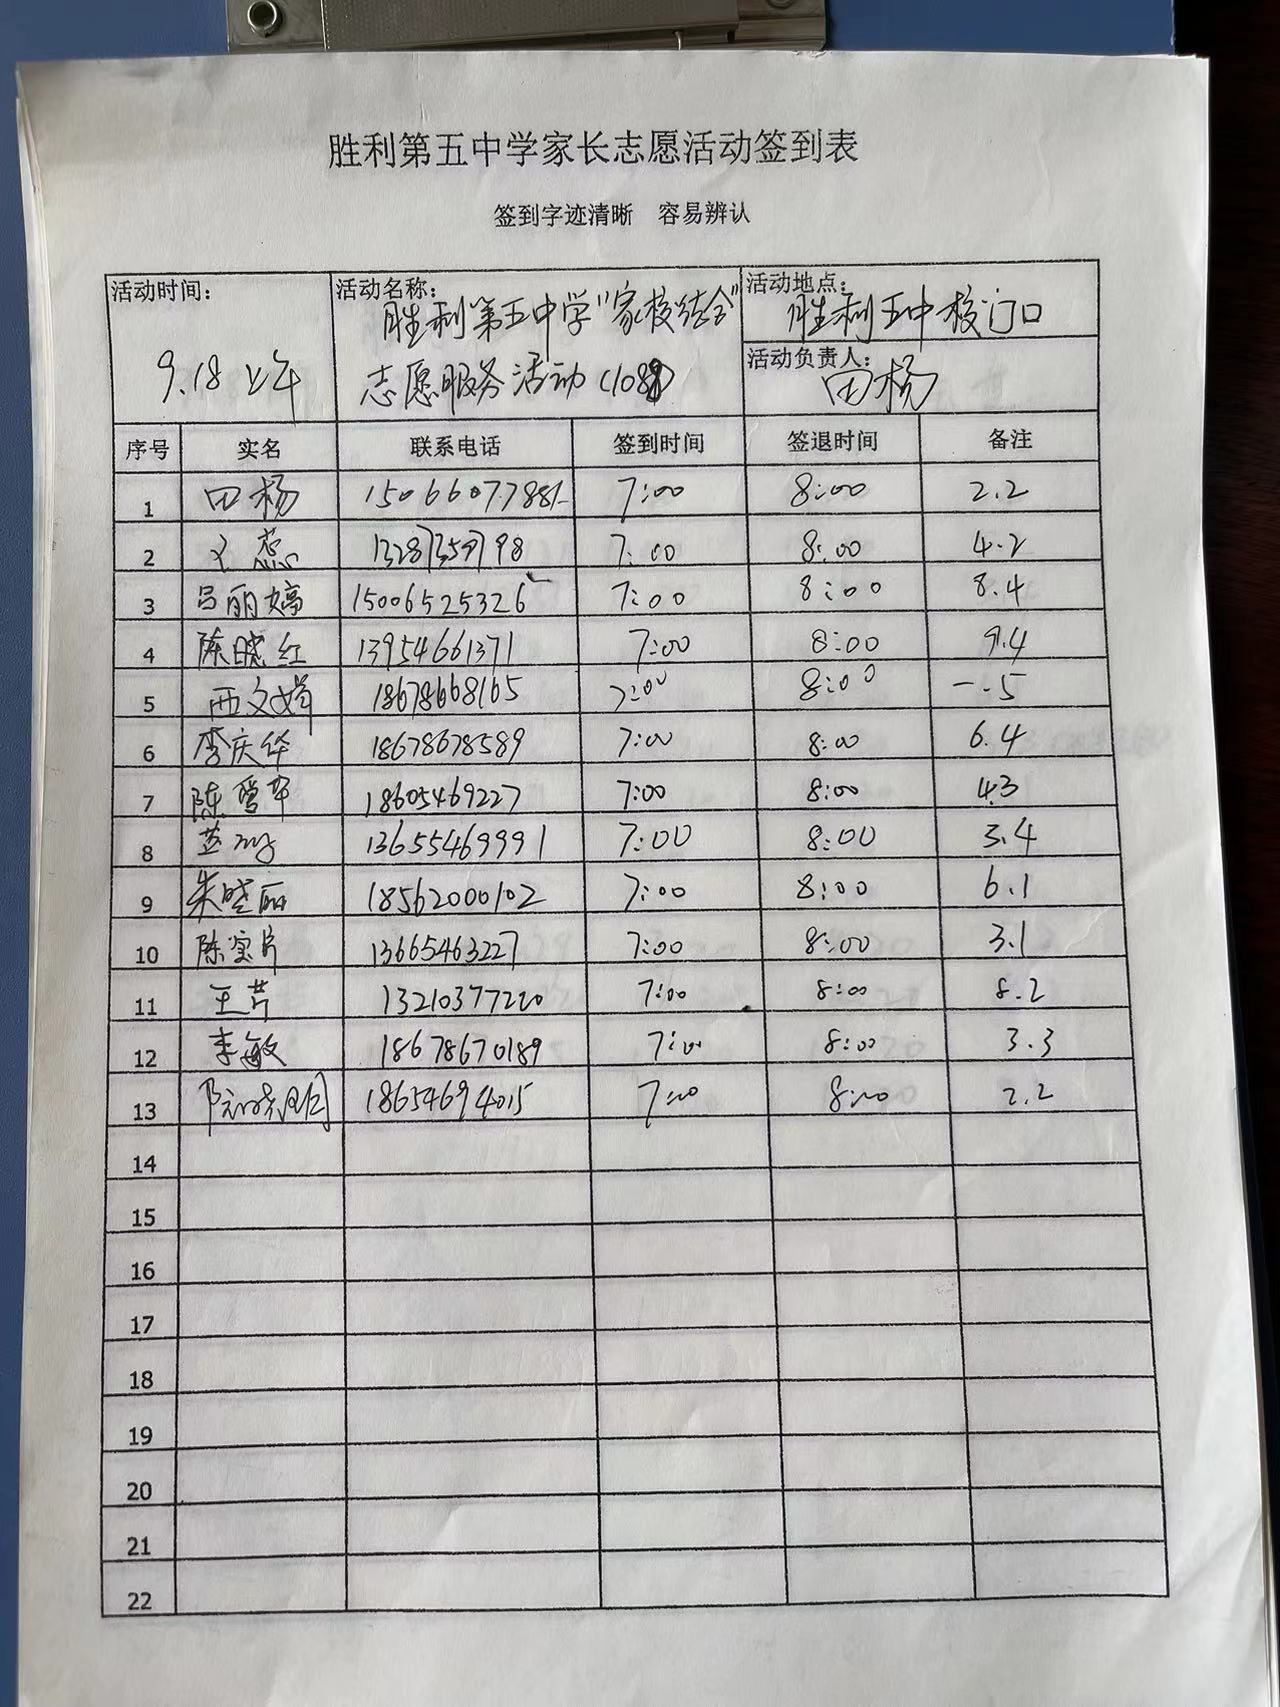 胜利第五中学家长志愿活动签到表
签到字迹清晰 容易辨认
活动时间: 9.18上午
活动名称: 胜利第五中学"家校结合"
志愿服务活动(108)
活动地点: 胜利五中校门口
活动负责人: 田杨
序号 实名 联系电话 签到时间 签退时间 备注
1 田杨 15066077881 7:00 8:00 2.2
2 文蕊 7:00 8:00 4.2
3 吕丽嫱 15006525326 7:00 8:00 8.4
4 陈晓红 13954661371 7:00 8:00 9.4
5 18678668165 7:00 8:00 一.5
6 李庆华 18678678589 7:00 8:00 6.4
7 陈 18605469227 7:00 8:00 4.3
8 13655469991 7:00 8:00 3.4
9 朱晓丽 18562000102 7:00 8:00 6.1
10 陈 13665463227 7:00 8:00 3.1
11 王芹 13210377220 7:00 8:00 8.2
12 李敏 18678670189 7:00 8:00 3.3
13 18654694015 7:00 8:00 2.2
14
15
16
17
18
19
20
21
22